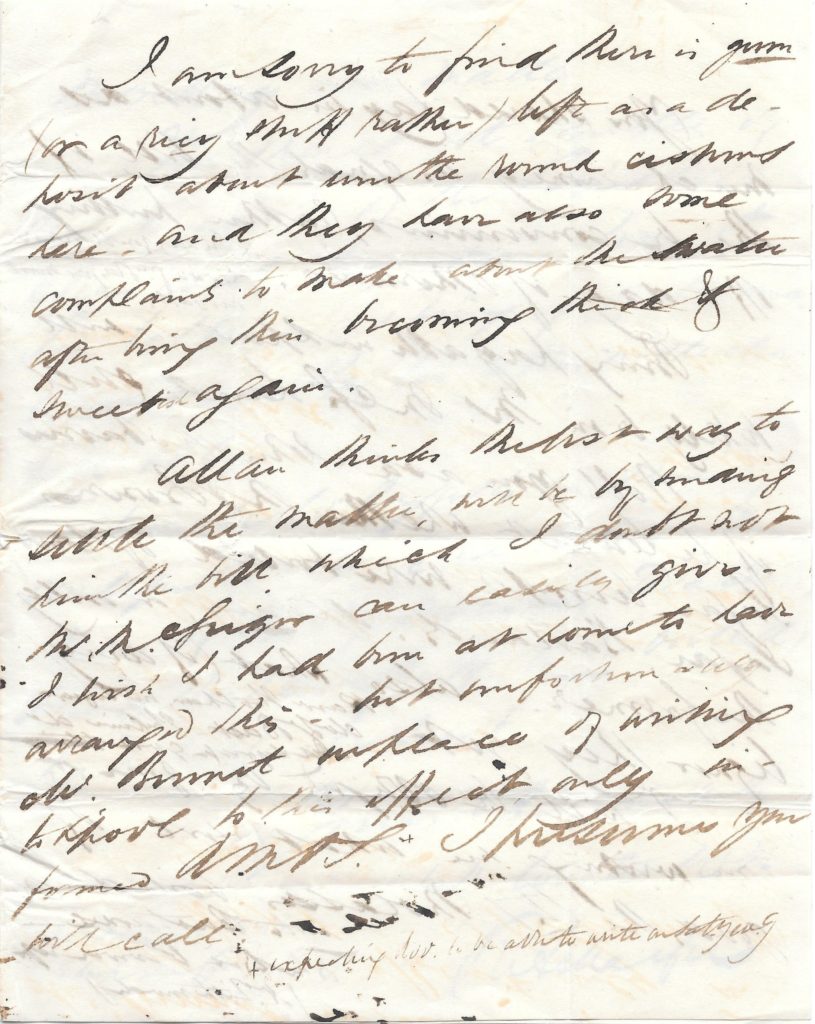 I am sorry to find there is gum
(or a ricy stuff rather) left as a de-
posit about um the round cisterns
here - and they have also some
complaints to make about the water
after being thin becoming thick &
sweet again.
Allan thinks the best way to
settle the matter, will be by sending
him the bill which I doubt not
Mr. McGrigor can easily give -
I wish I had been at home to have
arranged this - but unfortunately
Mr. Burnet in place of writing
to L'pool to this effect only in-
formed A.M & S. + I presume you
will call
+ expecting to be able to write on Saty evg